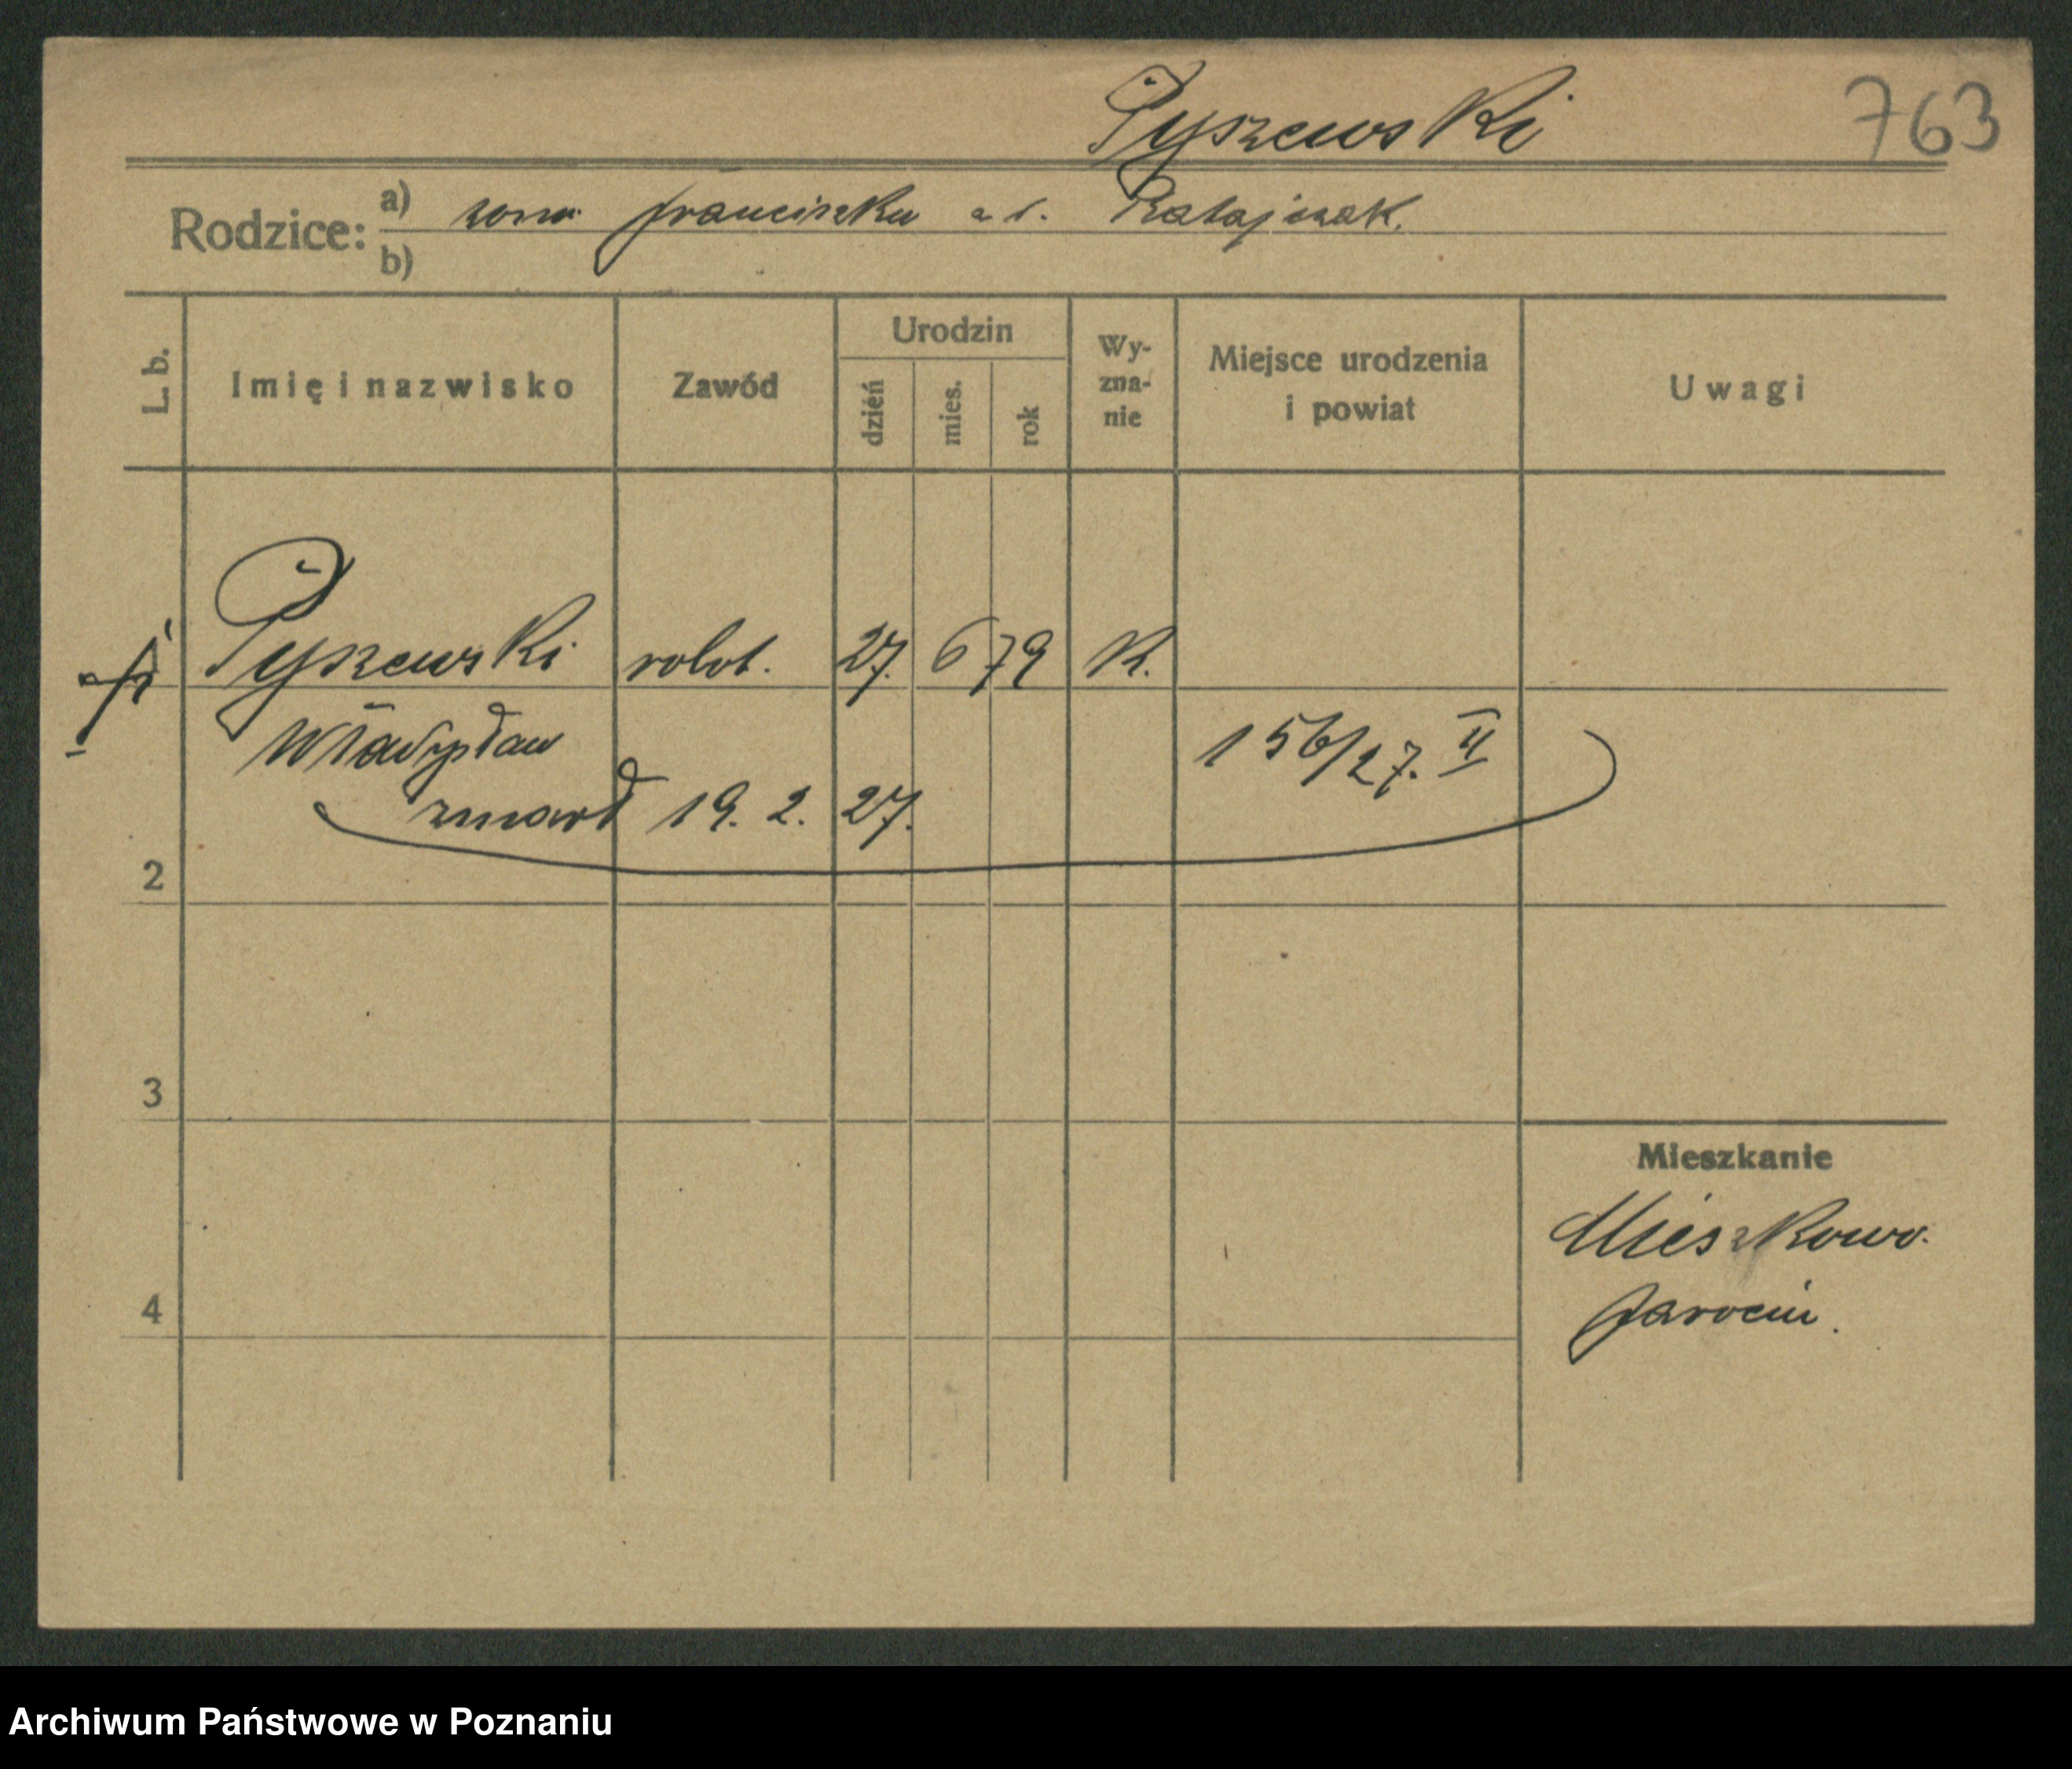 Pyszewski 763
Rodzice: a) Franciszka Ratajczak.
b)
L. b. Imię i nazwisko Zawód Urodzin dzień mies. rok Wy-zna-nie Miejsce urodzenia i powiat Uwagi
Pyszewski robot. 27. 6 79 K.
Władysław 156/27. II
zmarł 19. 2. 27.
2
3
Mieszkanie
Mieszkowo.
4 Jarocin.
Archiwum Państwowe w Poznaniu